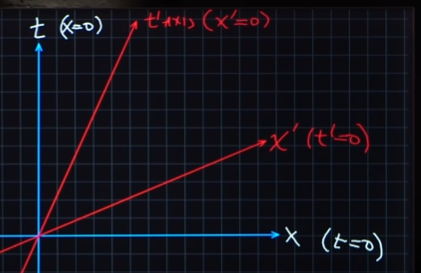 t (x=0)
t' axis (x'=0)
x' (t'=0)
x (t=0)